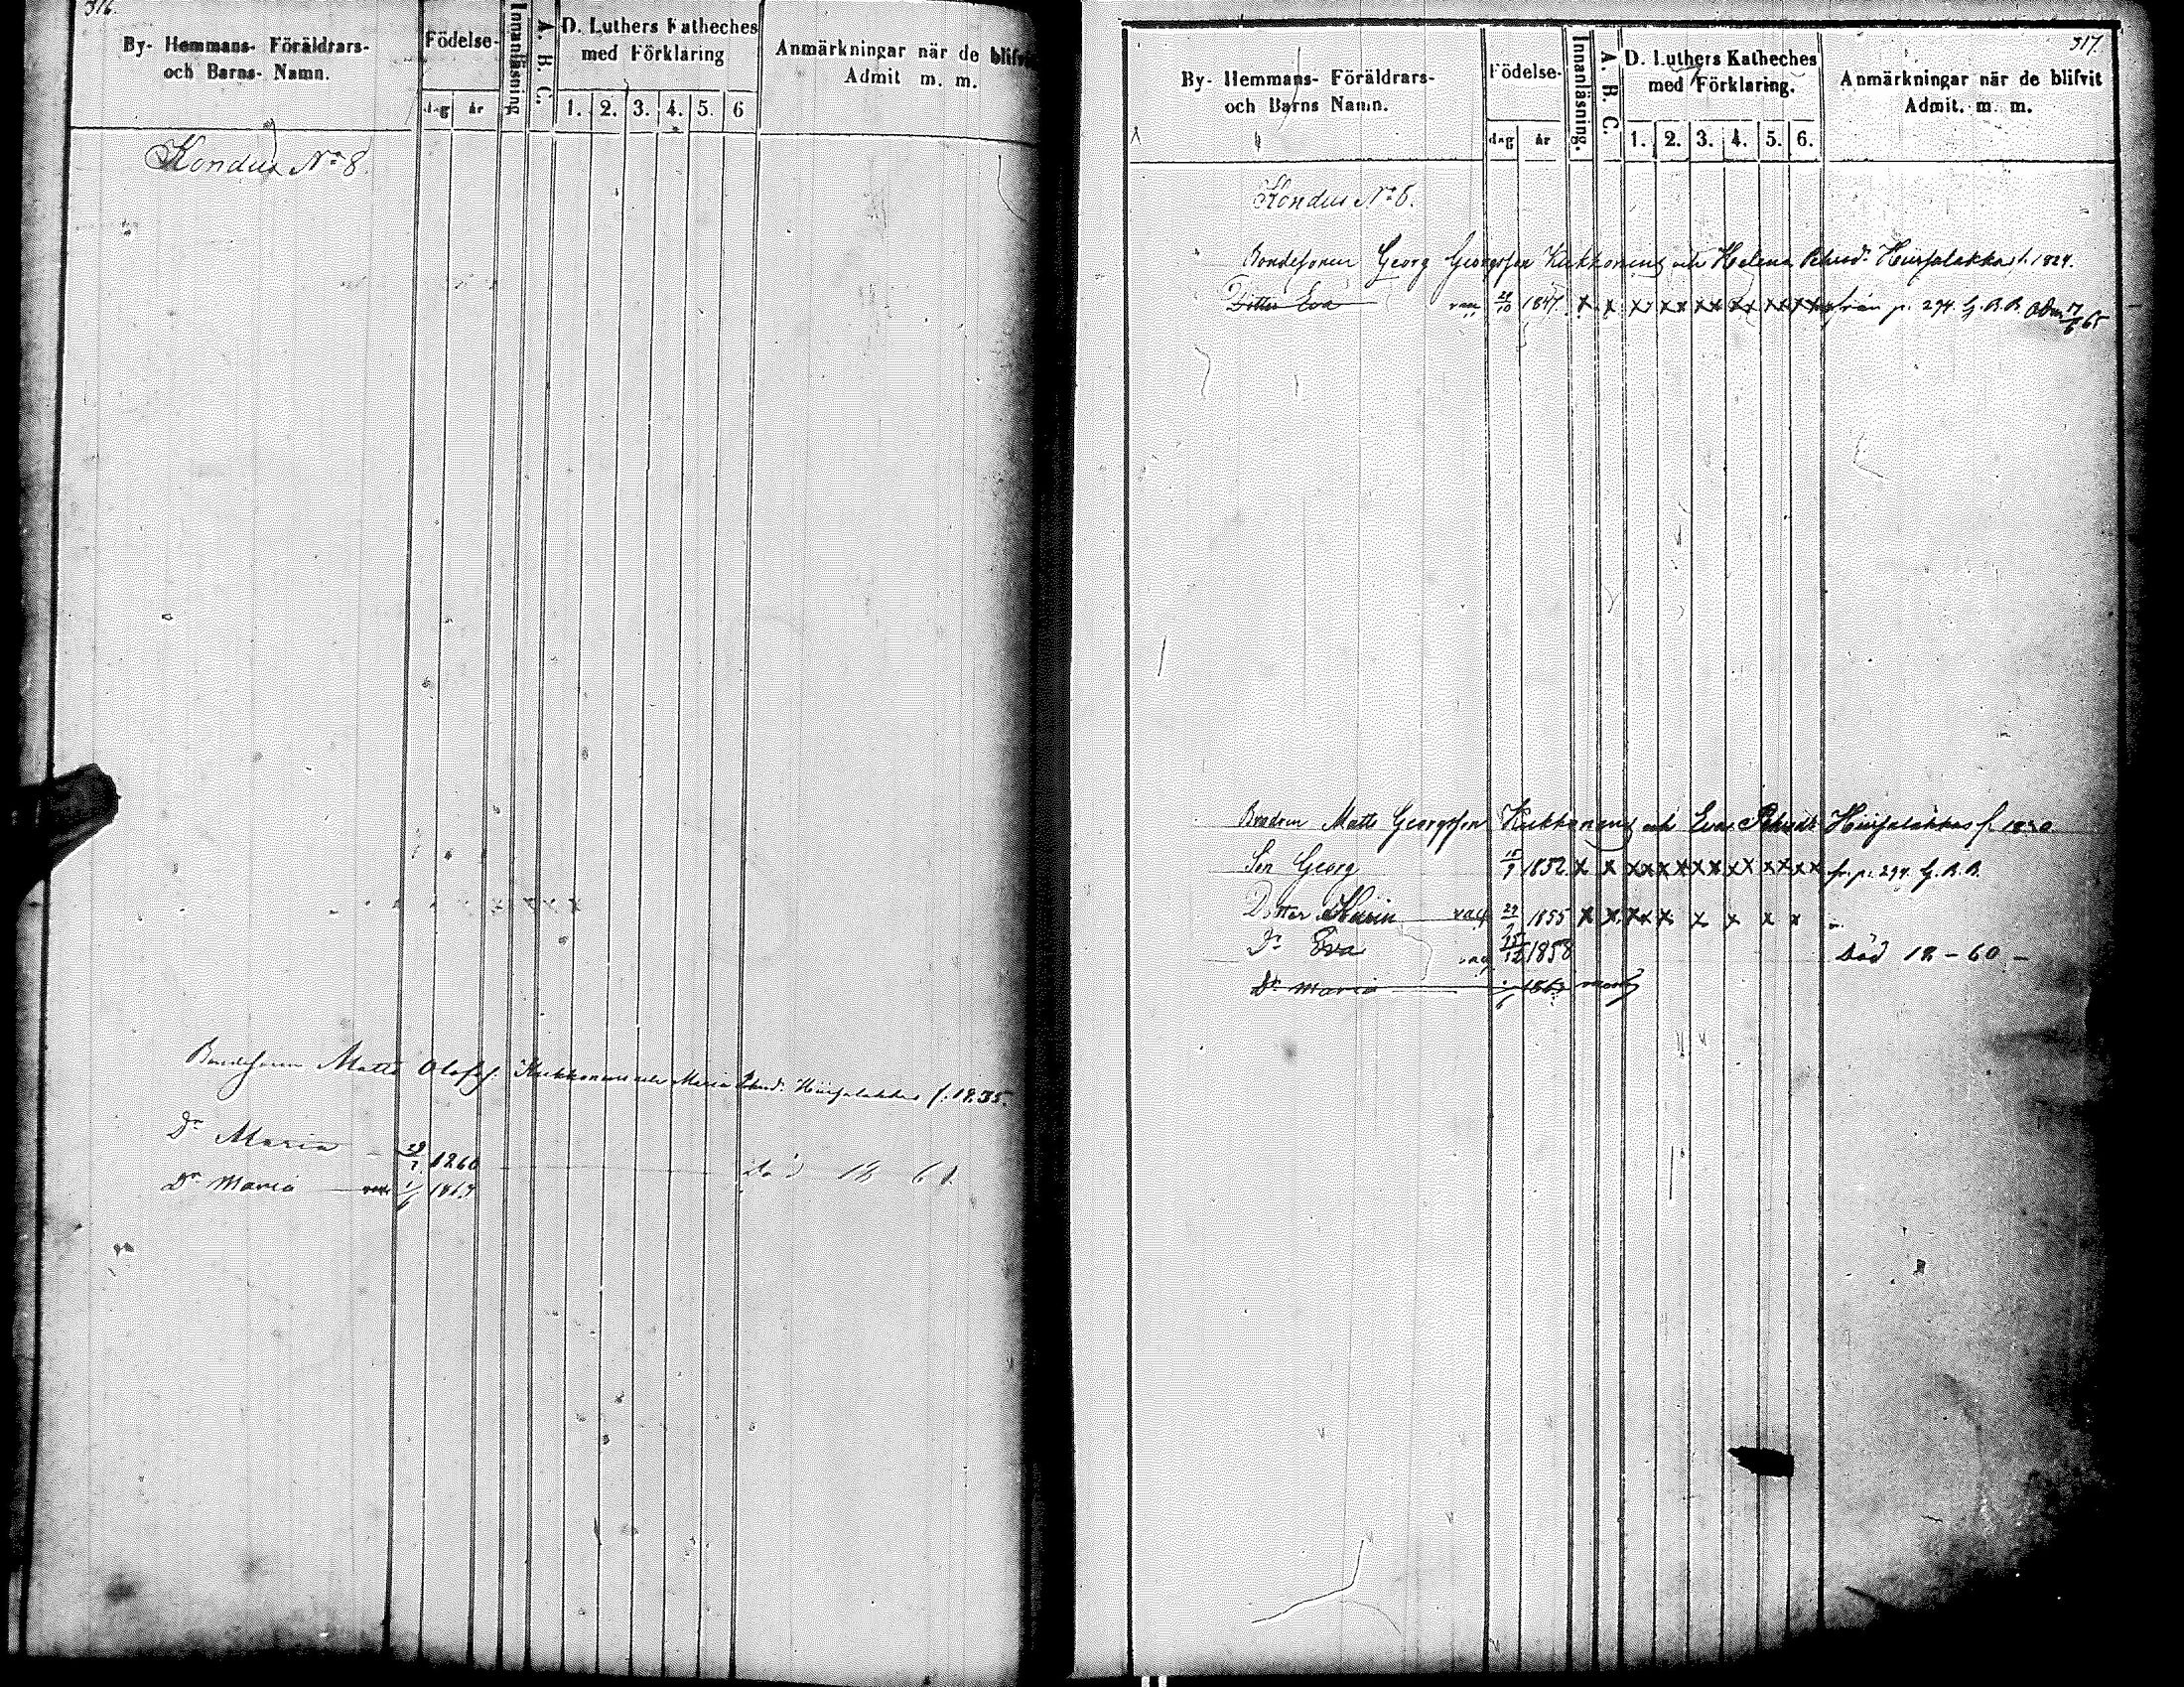 316.
By- Hemmans- Föräldrars-
och Barns- Namn.
Födelse-
dag år
Innanläsning
A. B. C.
D. Luthers Katheches
med Förklaring
1. 2. 3. 4. 5. 6
Anmärkningar när de blifvit
Admit m. m.
Kondus No 8.
Bondesonen Matts Olofs. Kukkonens och Maria Hiirsalakkas f. 1835.
Dr Maria 29/7 1860 död 18 61
Dr Maria vac 1/6
317.
By- Hemmans- Föräldrars-
och Barns Namn.
Födelse-
dag år
Innanläsning.
A. B. C.
D. Luthers Katheches
med Förklaring.
1. 2. 3. 4. 5. 6.
Anmärkningar när de blifvit
Admit. m. m.
Kondus No 8.
Bondesonen Georg Georgsson Kukkonens och Helena Pehrsd. Hiirsalakkas f. 1824.
Dotter Eva vac 29/10 1847. x x xx xx xx xx xx xx från p. 294. G. B. B. Adm 17/6 65
Brodren Matts Georgsson Kukkonens och Eva Pehrsdr Hiirsalakkas f. 1830
Son Georg 15/9 1852 x x xx xx xx xx xx xx fr. p. 294. G. B. B.
Dotter Karin vac 29/7 1855 x x xx x x x x x
Dr Eva vac 25/12 1858 Död 18-60-
Dr Maria